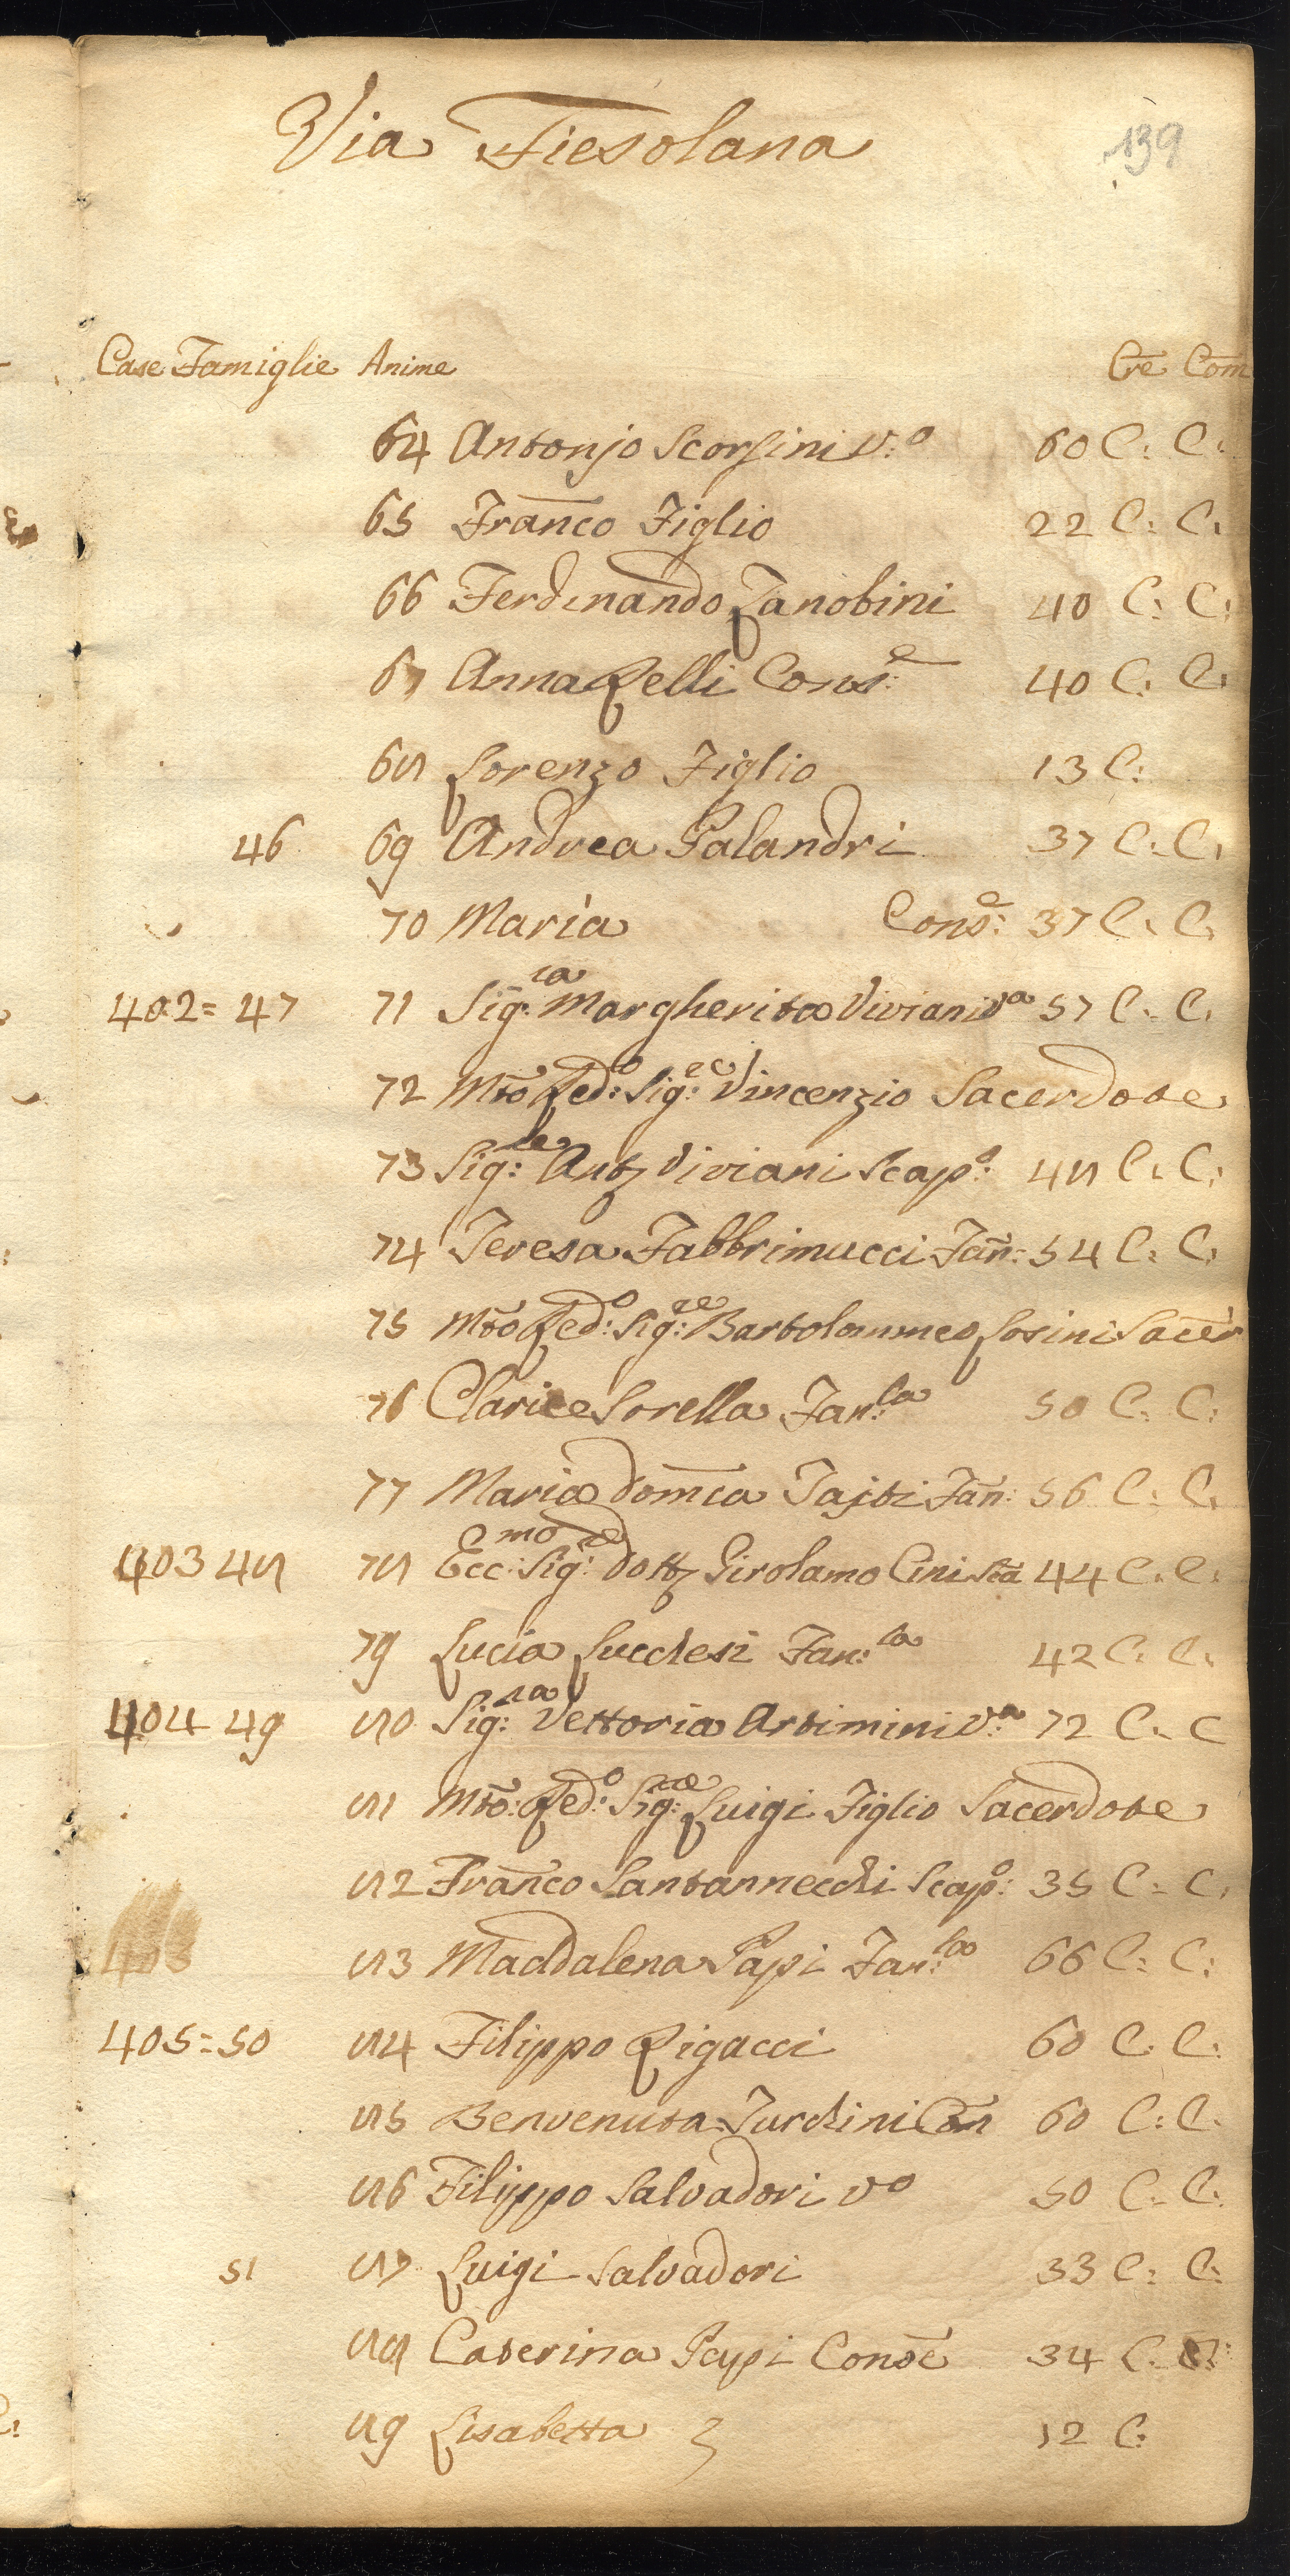 Via Fiesolana
139
Case Famiglie Anime Cre Com
64 Antonjo Scorsini V:o 60 C: C:
65 Franco Figlio 22 C: C:
66 Ferdinando Zanobini 40 C: C:
67 Anna Relli Cons:e 40 C: C:
68 Lorenzo Figlio 13 C:
46 69 Andrea Palandri 37 C: C:
70 Maria Cons:e 37 C: C:
402= 47 71 Sig:ra Margherita Viviani Va 57 C: C:
72 Mto Red:o Sig:re Vincenzio Sacerdote
73 Sig:re Viviani Scap:o 48 C: C:
74 Teresa Fabbrimucci Fan: 54 C: C:
75 Mto Red:o Sig:re Bartolommeo Losini Sacer
76 Clarice Sorella Fan:la 50 C: C:
77 Maria Domca Tajti Fan: 56 C: C:
403 48 78 Ecc:mo Sig:re Dott Girolamo Cini 44 C: C:
79 Lucia Lucchesi Fan:la 42 C: C:
404 49 80 Sig:ra Vettoria Artimini V:a 72 C: C
81 Mto: Red:o Sig:re Luigi Figlio Sacerdote
82 Franco Santannecchi Scap:o 35 C: C:
83 Maddalena Papi Fan:la 66 C: C:
405=50 84 Filippo Rigacci 60 C: C:
85 Benvenuta Turchini Con 60 C: C:
86 Filippo Salvadori Vo 50 C: C:
51 87 Luigi Salvadori 33 C: C:
88 Caterina Papi Conse 34 C: C:
89 Lisabetta 12 C: